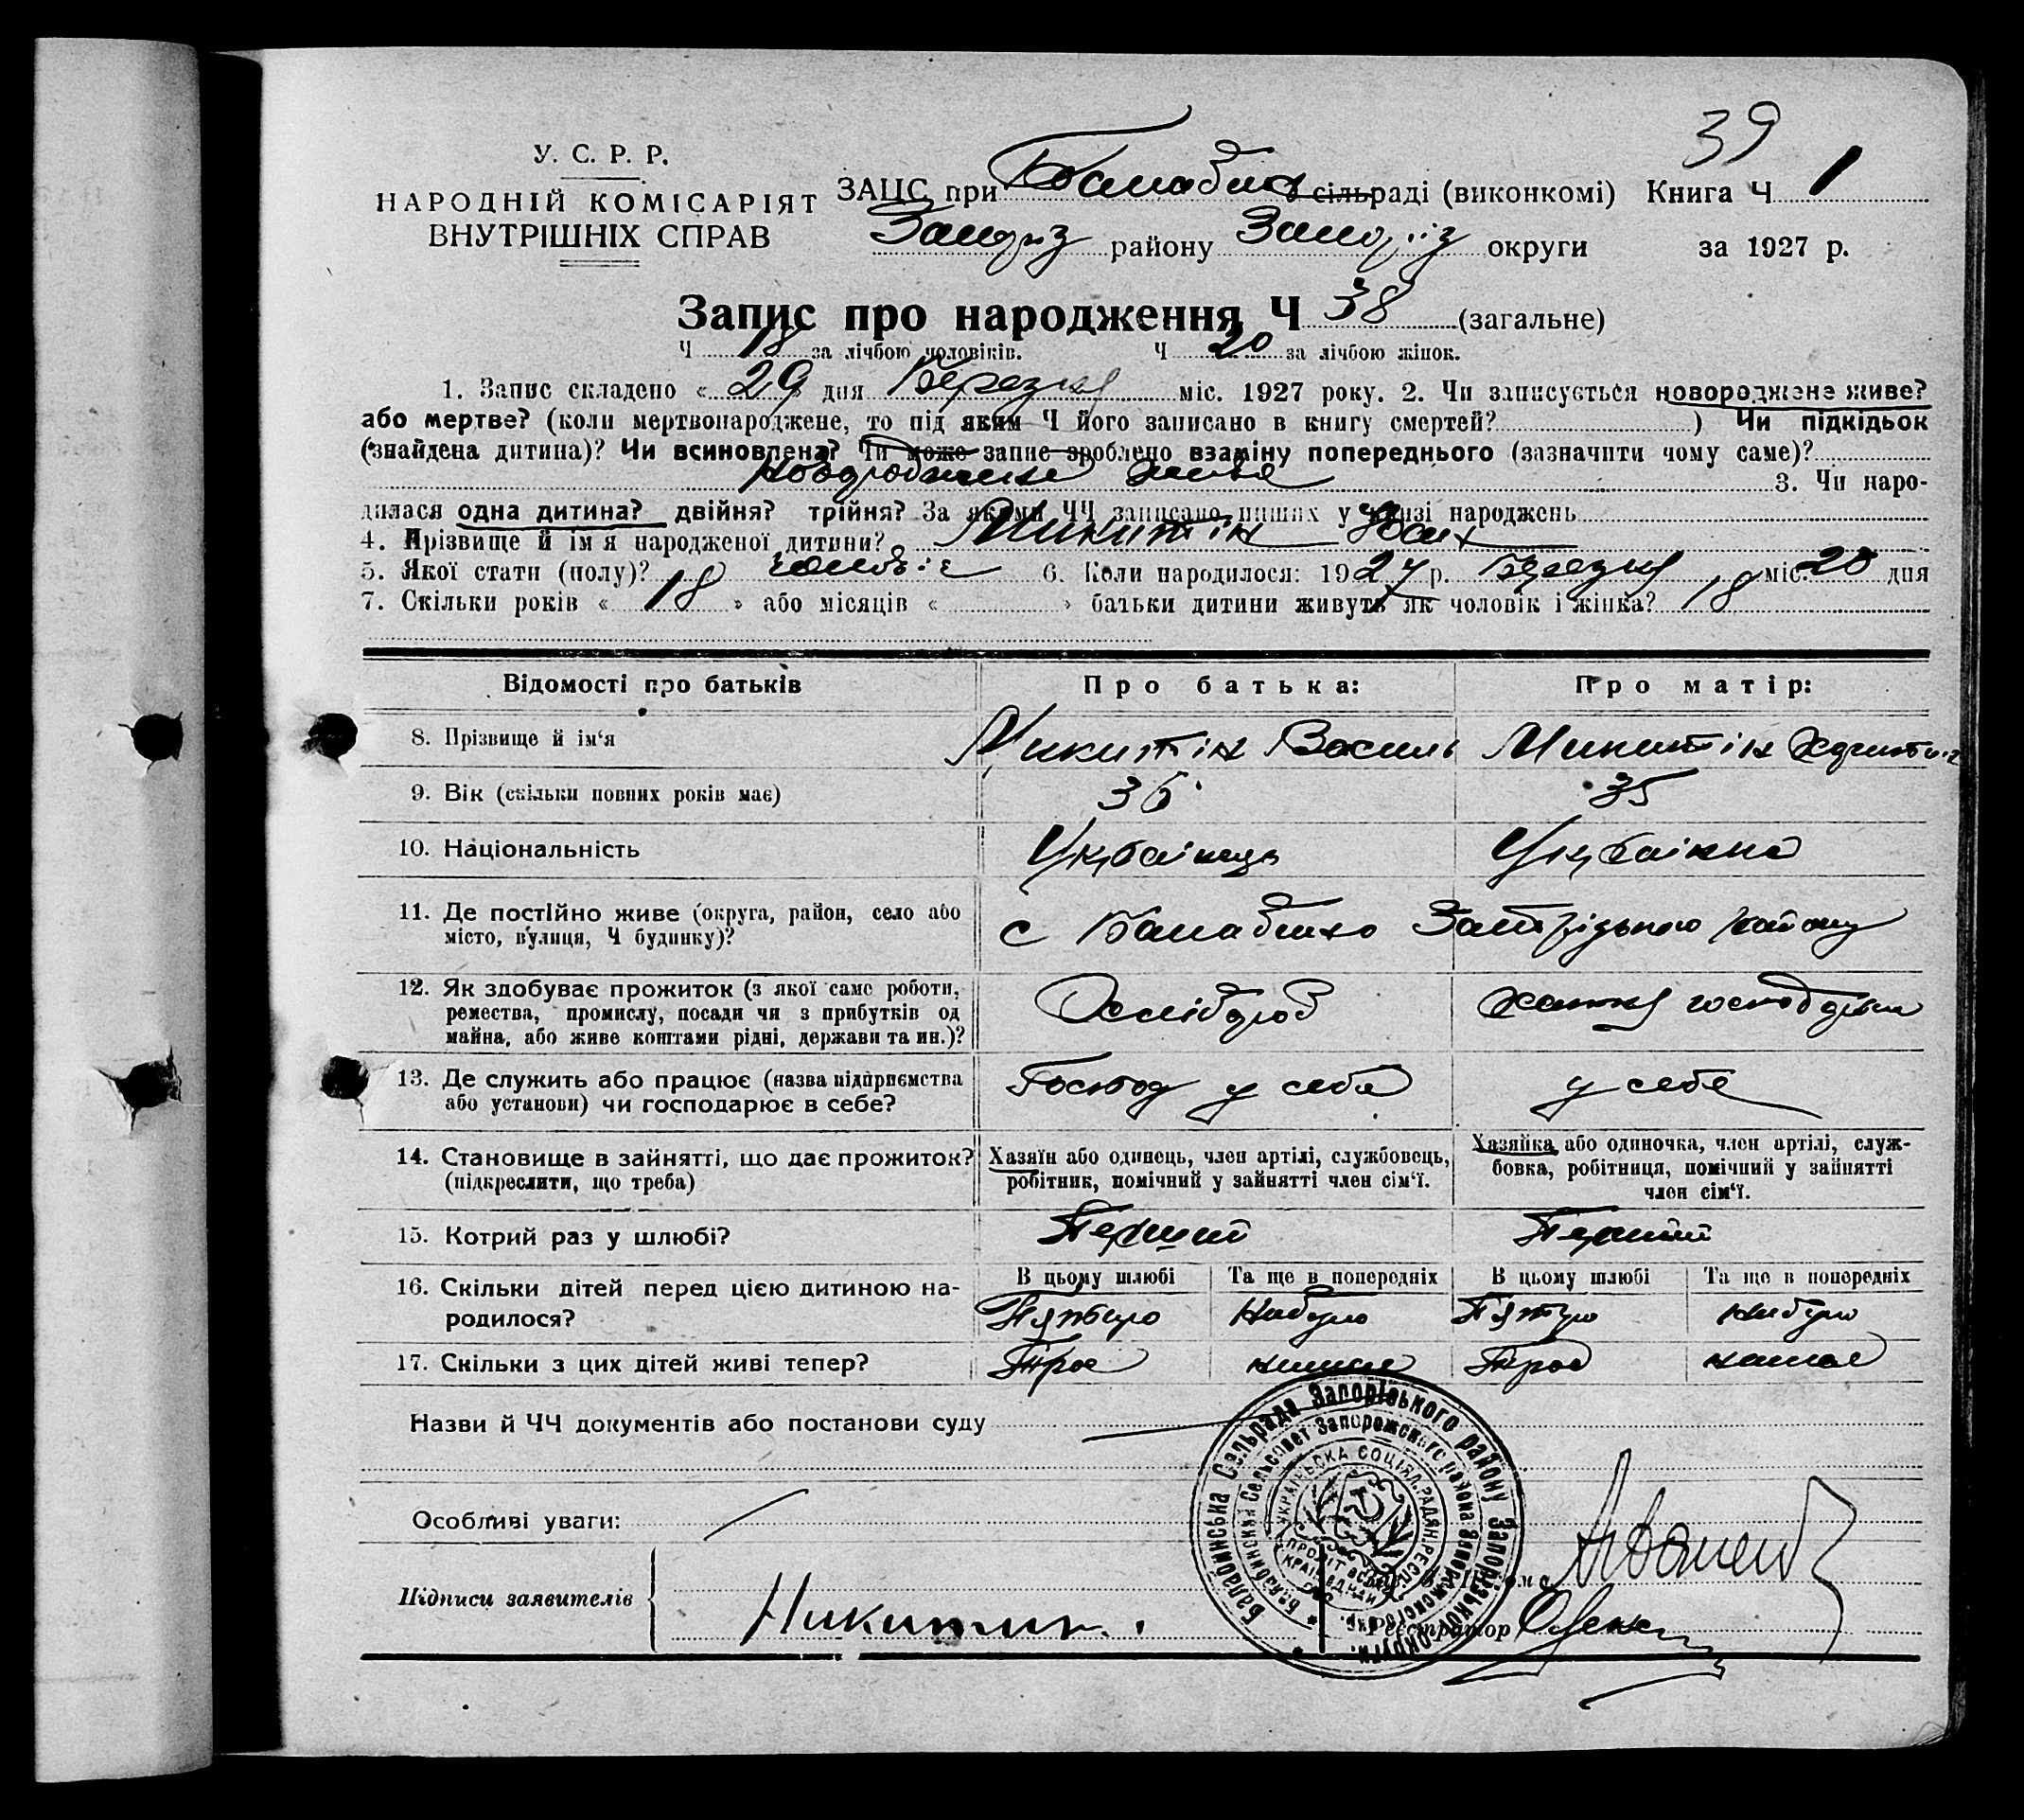 39
У. С. Р. Р.
НАРОДНІЙ КОМІСАРІЯТ
ВНУТРІШНІХ СПРАВ
ЗАЦС при сільраді (виконкомі) Книга Ч 1
району округи за 1927 р.
Запис про народження Ч 38 (загальне)
Ч 18 за лічбою чоловіків. Ч 20 за лічбою жінок.
1. Запис складено « 29 » дня Березня міс. 1927 року. 2. Чи записується новороджене живе?
або мертве? (коли мертвонароджене, то під яким Ч його записано в книгу смертей? ) Чи підкідьок
(знайдена дитина)? Чи всиновлена? Чи може запис зроблено взаміну попереднього (зазначити чому саме)?
новороджене живе 3. Чи наро-
дилася одна дитина? двійня? трійня? За якими ЧЧ записано инших у книзі народжень
4. Прізвище й ім'я народженої дитини? Микитін
5. Якої стати (полу)? 6. Коли народилося: 1927 р. Березня міс. 20 дня
7. Скільки років « 18 » або місяців « » батьки дитини живуть як чоловік і жінка? 18
Відомості про батьків Про батька: Про матір:
8. Прізвище й ім'я Микитін Василь Микитін
9. Вік (скільки повних років має) 36 35
10. Національність Українець Українка
11. Де постійно живе (округа, район, село або
місто, вулиця, Ч будинку)? с Балабино Запорізького району
12. Як здобуває прожиток (з якої саме роботи,
ремества, промислу, посади чи з прибутків од
майна, або живе коштами рідні, держави та ин.)? Хлібороб хатня господарка
13. Де служить або працює (назва підприємства
або установи) чи господарює в себе? Господ у себе у себе
14. Становище в зайнятті, що дає прожиток?
(підкреслити, що треба)
Хазяїн або одинець, член артілі, службовець,
робітник, помічний у зайнятті член сім'ї.
Хазяйка або одиночка, член артілі, служ-
бовка, робітниця, помічний у зайнятті
член сім'ї.
15. Котрий раз у шлюбі? Перший Перший
16. Скільки дітей перед цією дитиною на-
родилося?
В цьому шлюбі Та ще в попередніх В цьому шлюбі Та ще в попередніх
Пятеро небуло Пятеро небуло
17. Скільки з цих дітей живі тепер? Троє немає Троє немає
Назви й ЧЧ документів або постанови суду
Особливі уваги:
Підписи заявителів
Никитин.
Реєстратор
Балабінська Сельрада Запорізького району Запорізької округи.
Балабинский Сельсовет Запорожского района Запорожского окр.
УКРАЇНСЬКА СОЦІЯЛ. РАДЯН. РЕСП.